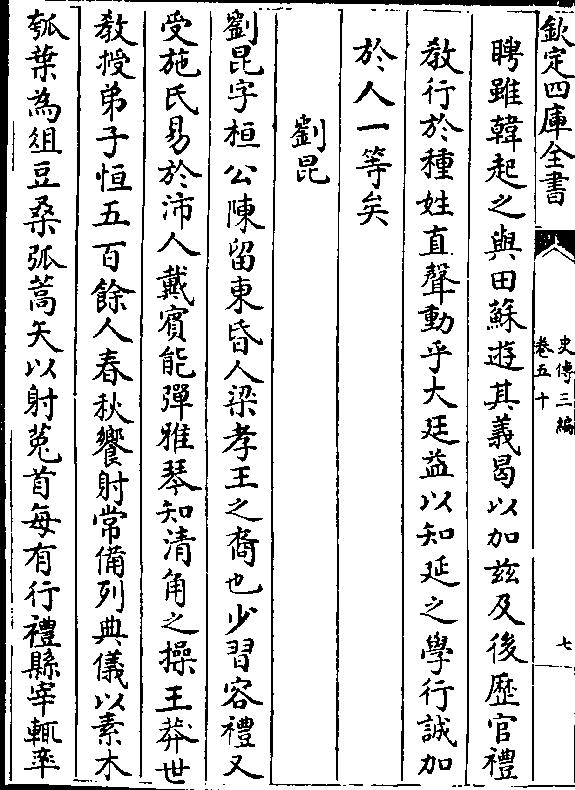 欽定四庫全書
史傳三編
卷五十
七
聘雖韓起之與田蘇遊其義曷以加兹及後歷官禮
教行於種姓直聲動乎大廷益以知延之學行誠加
於人一等矣
劉昆
劉昆字桓公陳留東昏人梁孝王之裔也少習容禮又
受施氏易於沛人戴賓能彈雅琴知清角之操王莽世
教授弟子恒五百餘人春秋饗射常備列典儀以素木
瓠葉為俎豆桑弧蒿矢以射菟首每有行禮縣宰輒率